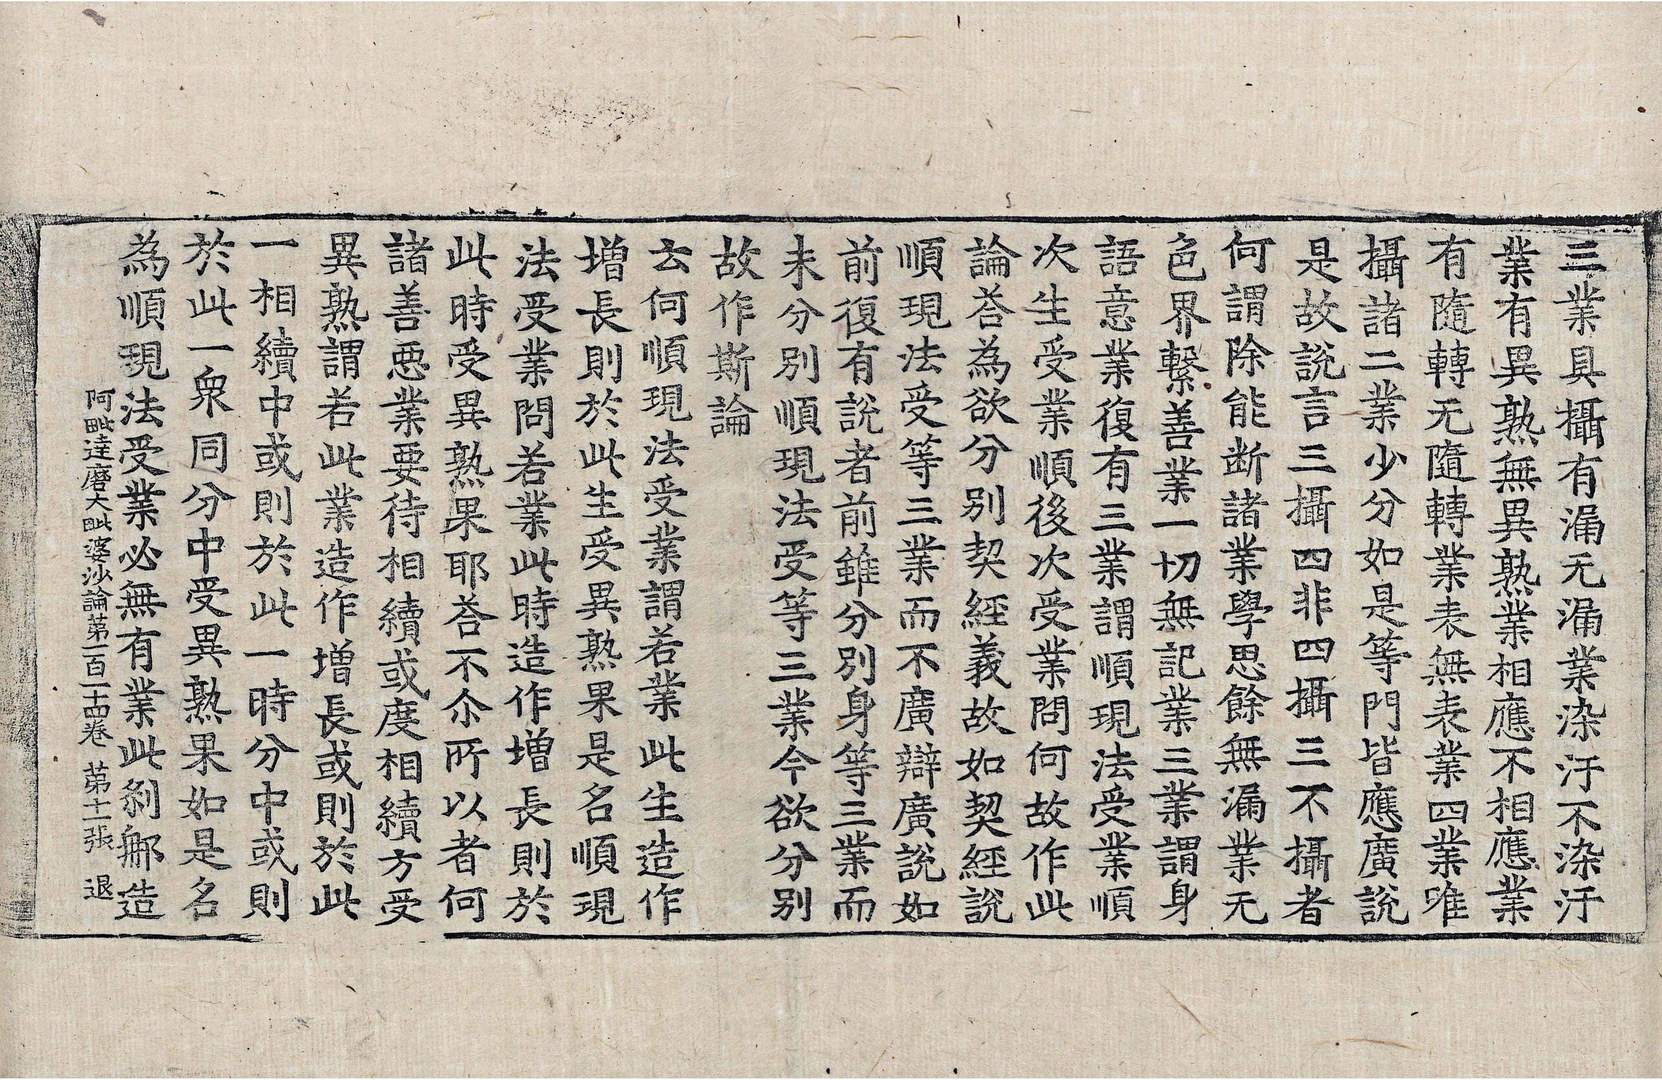 三業具攝有漏无漏業染汙不染汙
業有異熟無異熟業相應不相應業
有隨轉无隨轉業表無表業四業唯
攝諸二業少分如是等門皆應廣說
是故說言三攝四非四攝三不攝者
何謂除能断諸業學思餘無漏業无
色界繫善業一切無記業三業謂身
語意業復有三業謂順現法受業順
次生受業順後次受業問何故作此
論荅為欲分別契經義故如契經說
順現法受等三業而不廣辯廣說如
前復有說者前雖分別身等三業而
未分別順現法受等三業今欲分別
故作斯論
云何順現法受業謂若業此生造作
増長則於此生受異熟果是名順現
法受業問若業此時造作增長則於
此時受異熟果耶荅不尒所以者何
諸善惡業要待相續或度相續方受
異熟謂若此業造作增長或則於此
一相續中或則於此一時分中或則
於此一衆同分中受異熟果如是名
為順現法受業必無有業此剎那造
阿毗達磨大毗婆沙論第一百一十四卷 苐十一張 退